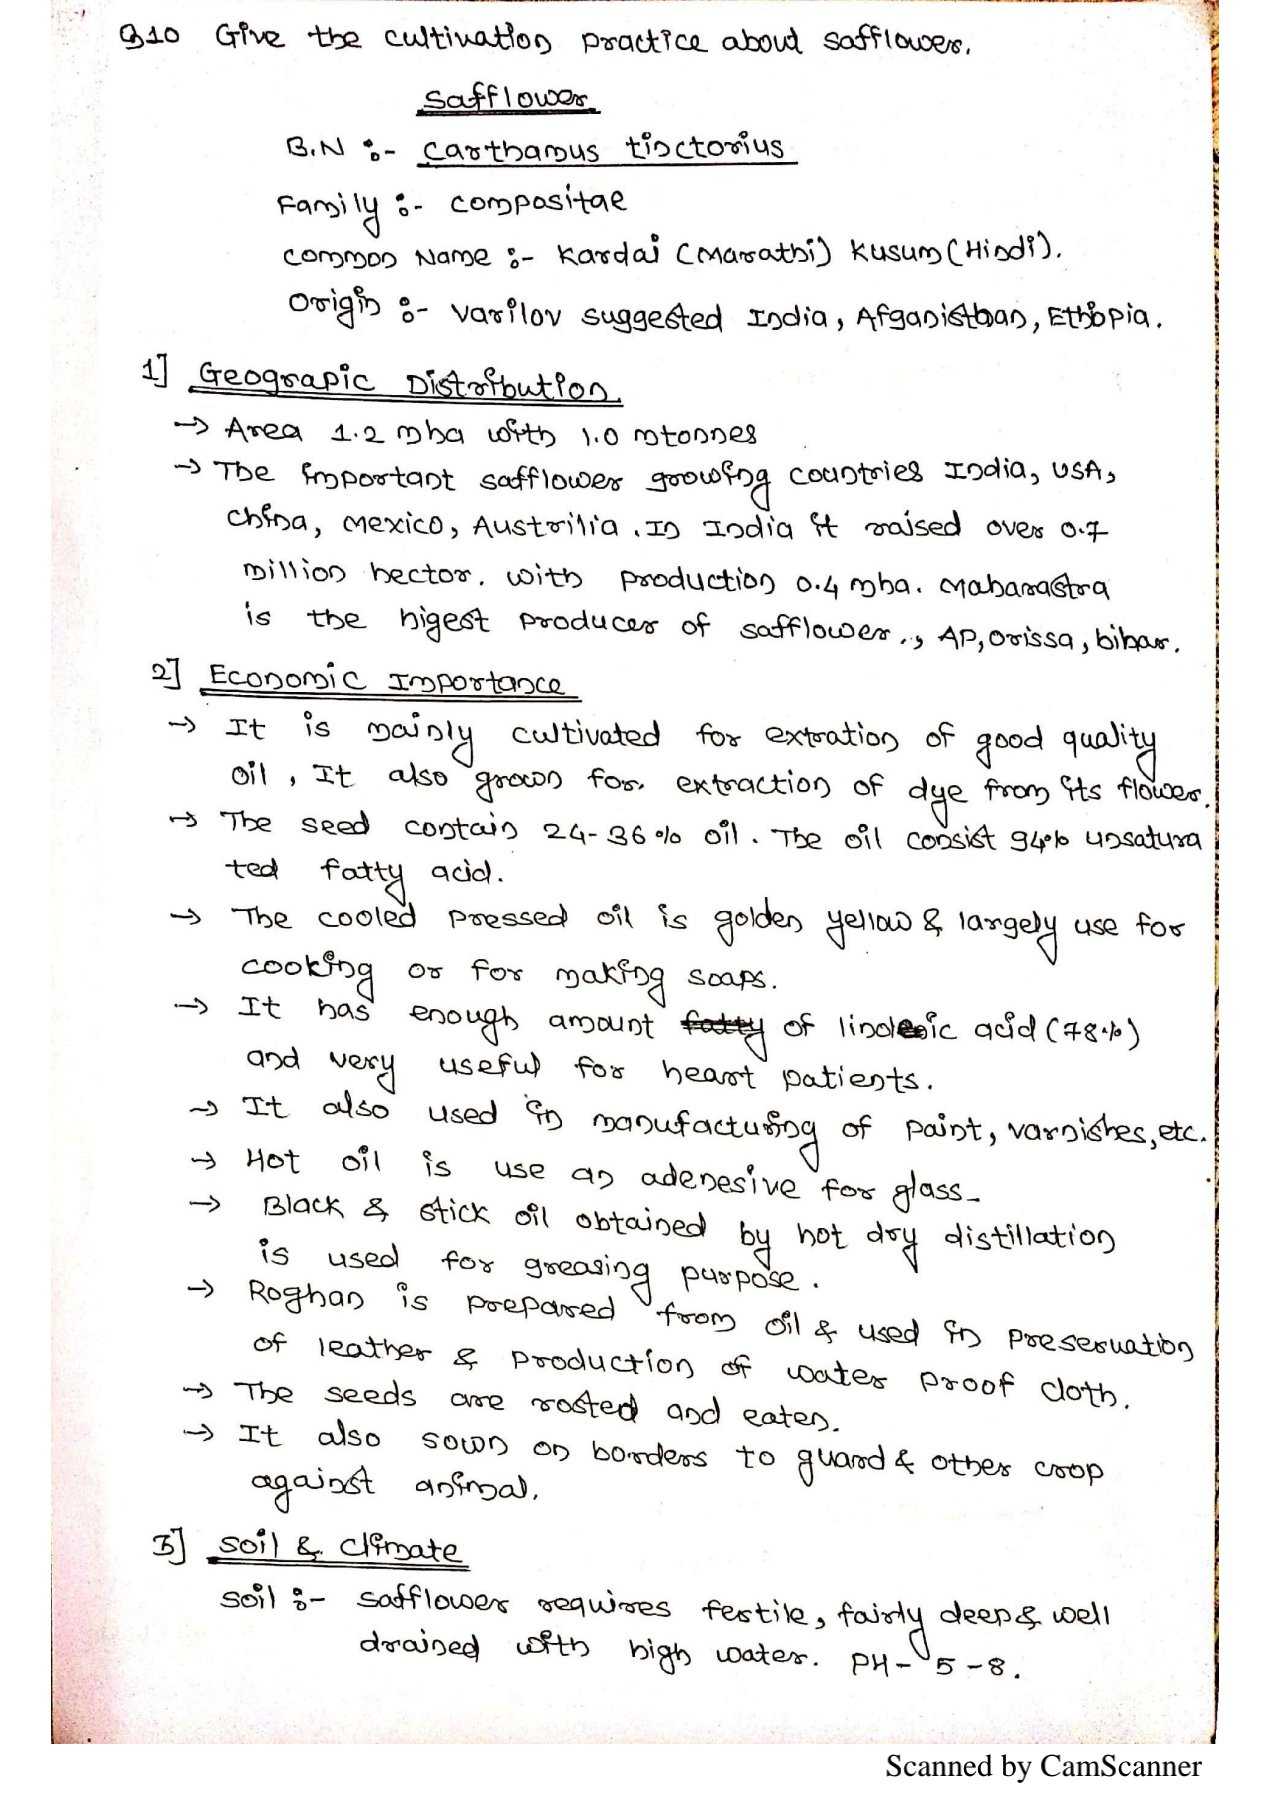 Q10 Give the cultivation practice about safflower.
Safflower
B.N :- Carthamus tinctorius
Family :- compositae
common Name :- Kardai (Marathi) Kusum (Hindi).
Origin :- Varilov suggested India, Afganisthan, Ethopia.
1] Geograpic Distribution.
→ Area 1.2 mha with 1.0 mtonnes
→ The important safflower growing countries India, USA,
China, Mexico, Austrilia. In India it raised over 0.7
million hector. with production 0.4 mha. Maharastra
is the higest producer of safflower., AP, orissa, bihar.
2] Economic Importance
→ It is mainly cultivated for extration of good quality
oil, It also grown for. extraction of dye from its flower.
→ The seed contain 24-36% oil. The oil consist 94% unsatura
ted fatty acid.
→ The cooled pressed oil is golden yellow & largely use for
cooking or for making soaps.
→ It has enough amount fatty of linoleic acid (78%)
and very useful for heart patients.
→ It also used in manufacturing of paint, varnishes, etc.
→ Hot oil is use an adehesive for glass-
→ Black & stick oil obtained by hot dry distillation
is used for greasing purpose.
→ Roghan is prepared from oil & used in preservation
of leather & production of water proof cloth.
→ The seeds are rosted and eaten.
→ It also sown on borders to guard & other crop
against animal.
3] Soil & Climate
Soil :- safflower requires fertile, fairly deep & well
drained with high water. PH - 5 - 8.
Scanned by CamScanner